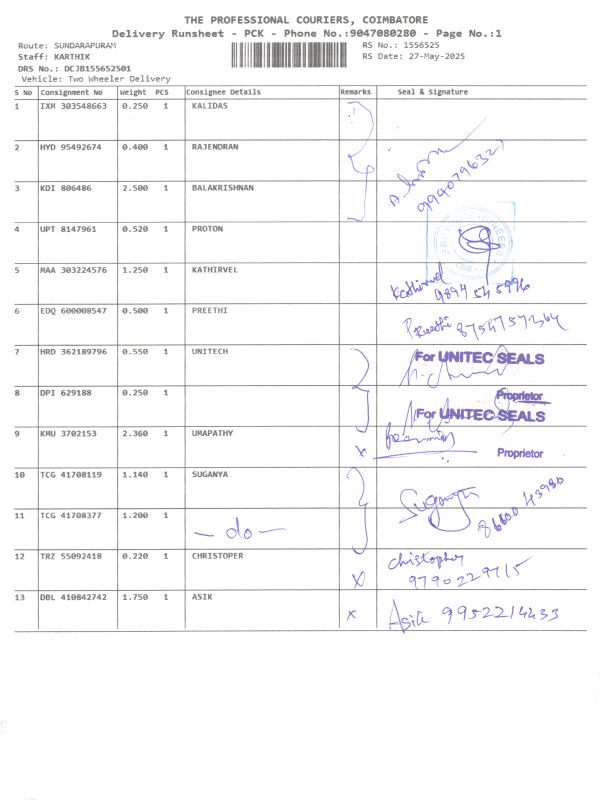 THE PROFESSIONAL COURIERS, COIMBATORE
Delivery Runsheet - PCK - Phone No.:9047080280 - Page No.:1
Route: SUNDARAPURAM RS No.: 1556525
Staff: KARTHIK RS Date: 27-May-2025
DRS No.: DCJB155652501
Vehicle: Two Wheeler Delivery
S No Consignment No Weight PCS Consignee Details Remarks Seal & Signature
1 IXM 303548663 0.250 1 KALIDAS
2 HYD 95492674 0.400 1 RAJENDRAN
3 KDI 806486 2.500 1 BALAKRISHNAN
4 UPT 8147961 0.520 1 PROTON
5 MAA 303224576 1.250 1 KATHIRVEL Kathirvel
6 EDQ 600008547 0.500 1 PREETHI Preethi
7 HRD 362189796 0.550 1 UNITECH For UNITEC SEALS
Proprietor
8 DPI 629188 0.250 1 For UNITEC SEALS
9 KMU 3702153 2.360 1 UMAPATHY x Proprietor
10 TCG 41708119 1.140 1 SUGANYA Suganya
11 TCG 41708377 1.200 1 - do -
12 TRZ 55092418 0.220 1 CHRISTOPER x Christopher
9790229715
13 DBL 410842742 1.750 1 ASIK x Asik 9952214433